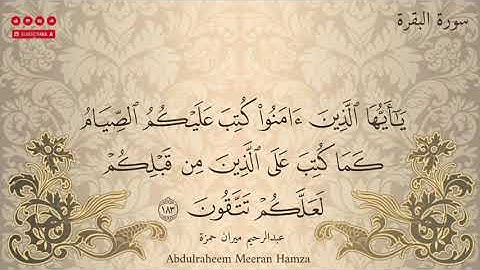 سورة البقرة
يَٰٓأَيُّهَا ٱلَّذِينَ ءَامَنُوا۟ كُتِبَ عَلَيْكُمُ ٱلصِّيَامُ
كَمَا كُتِبَ عَلَى ٱلَّذِينَ مِن قَبْلِكُمْ
لَعَلَّكُمْ تَتَّقُونَ ١٨٣
عبدالرحيم ميران حمزة
Abdulraheem Meeran Hamza